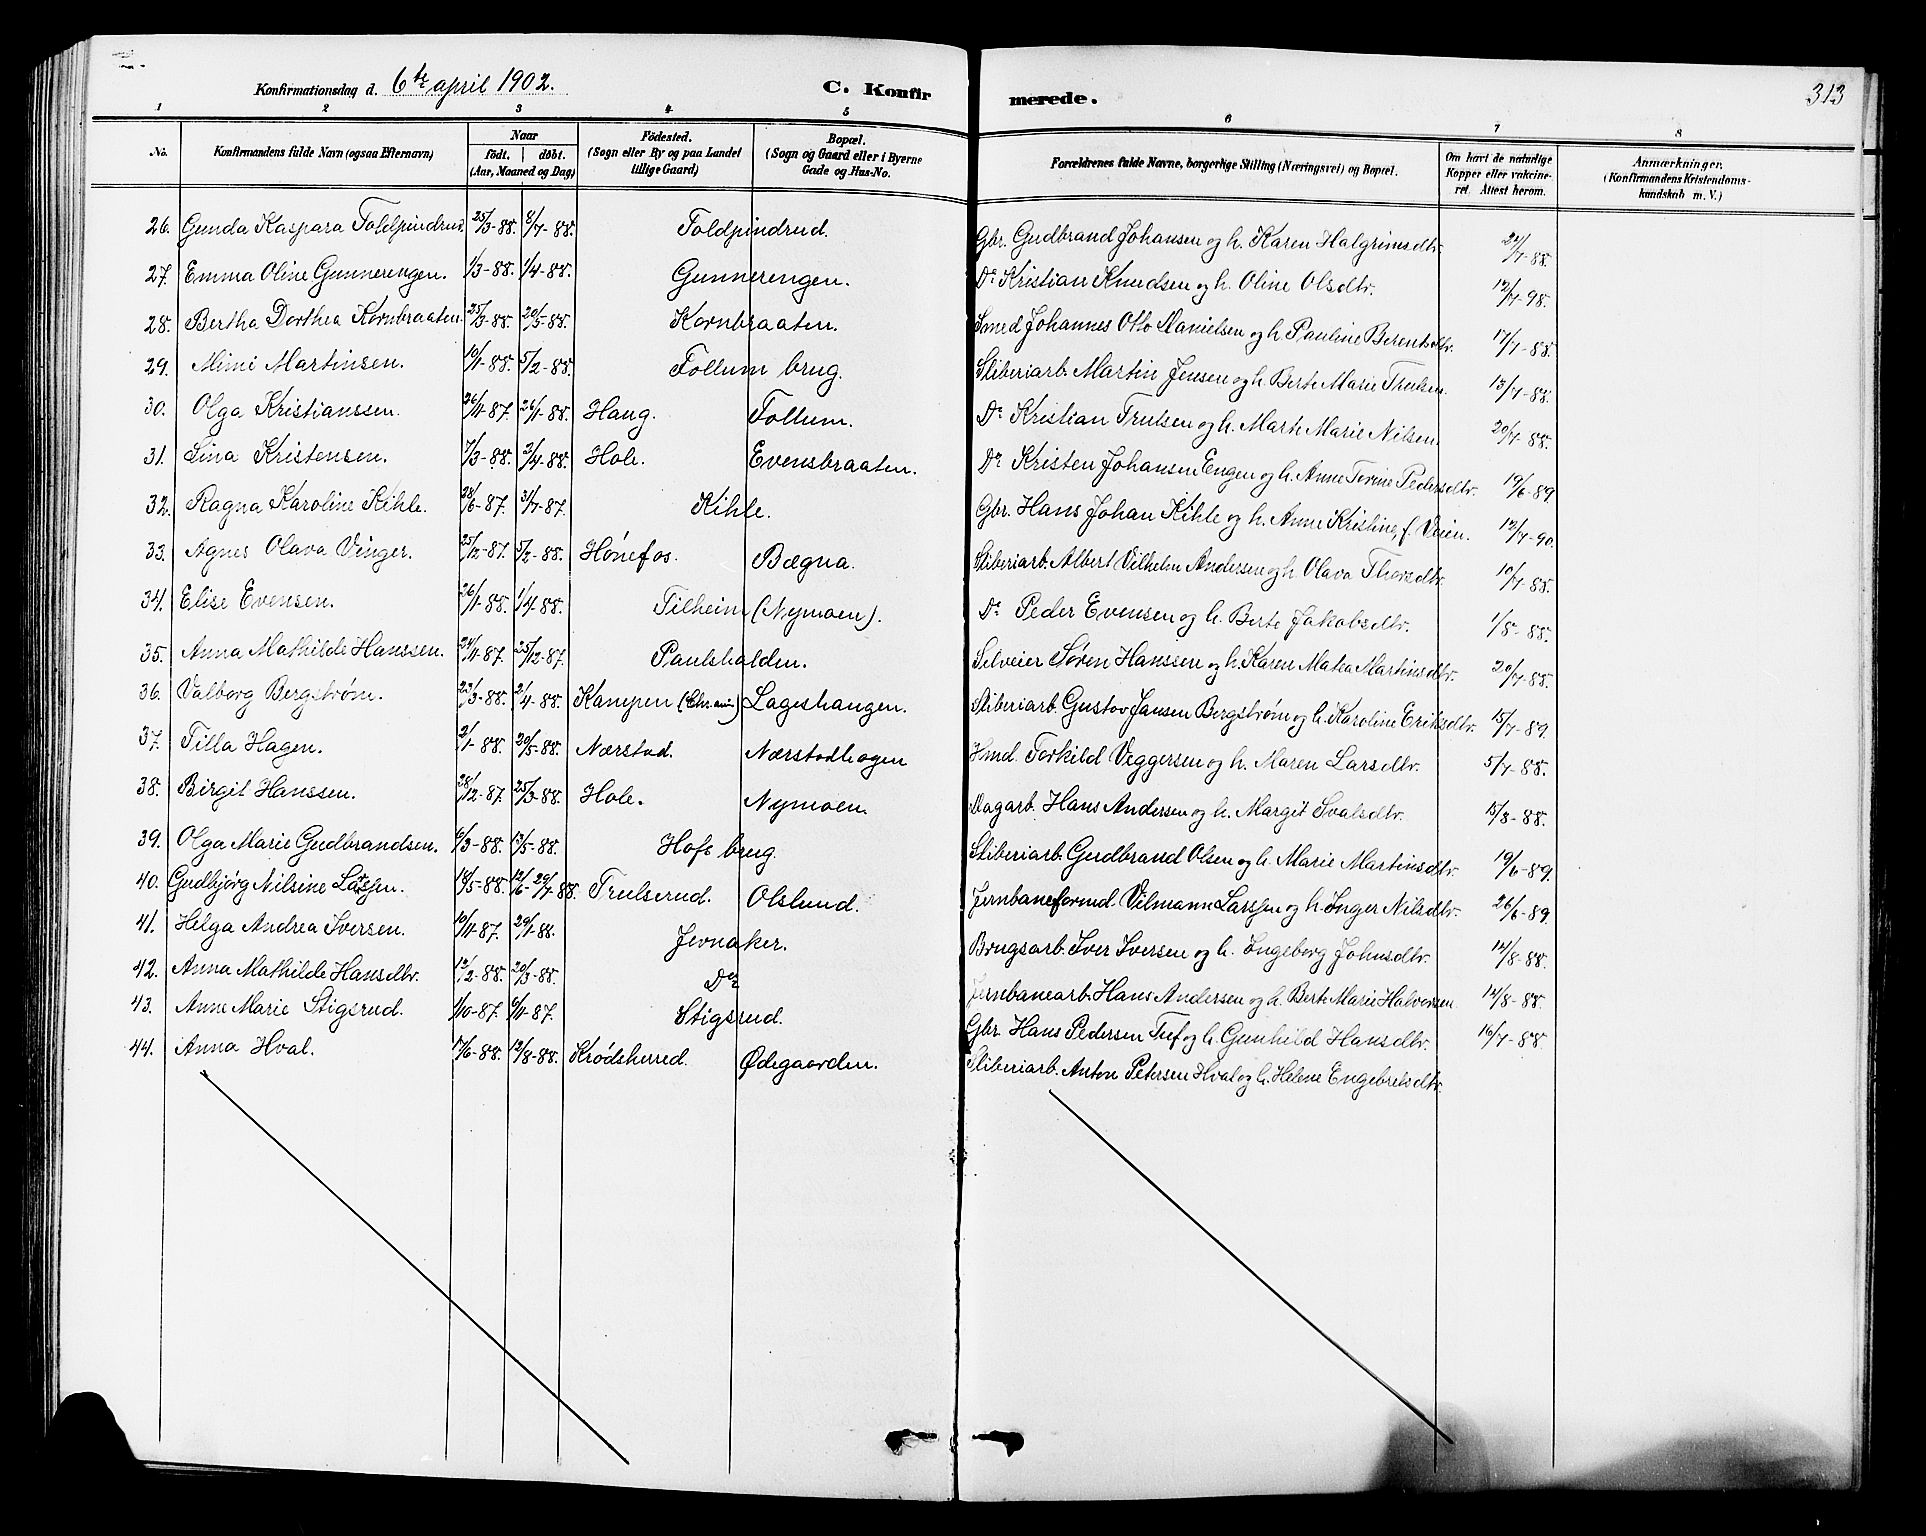 Konfirmationsdag d. 6te april 1902. C. Konfirmerede. 313
1 2 3 4 5 6 7 8
No. Konfirmandens fulde Navn (ogsaa Efternavn) Naar født. døbt. (Aar, Maaned og Dag) Fødested. (Sogn eller By og paa Landet tillige Gaard) Bopæl. (Sogn og Gaard eller i Byerne Gade og Hus-No. Forældrenes fulde Navne, borgerlige Stilling (Næringsvei) og Bopæl. Om havt de naturlige Kopper eller vakcineret. Attest herom. Anmærkninger. (Konfirmandens Kristendomskundskab m. V.)
26. Gunda Kaspara Foldpindrud 25/3-88. 8/4-88. Foldpindrud. Gbr. Gudbrand Johansen og h. Karen Halgrimsdtr. 24/7-88.
27. Emma Oline Gunnerengen. 1/3-88. 1/4-88. Gunnerengen. Do Kristian Knudsen og h. Oline Olsdtr. 12/7-98.
28. Bertha Dorthea Kornbraaten. 25/3-88. 20/5-88. Kornbraaten. Smed Johannes Otto Danielsen og h. Pauline Berentsdtr. 17/7-88.
29. Mimi Martinsen. 10/1-88. 5/2-88. Follum brug. Sliberiarb. Martin Jensen og h. Berte Marie Trulsen. 13/7-88.
30. Olga Kristianssen. 26/11-87. 26/1-88. Haug. Follum. Do Kristian Trulsen og h. Marth. Marie Nilsen. 20/7-88.
31. Lina Kristensen. 7/3-88. 2/4-88. Hole. Evensbraaten. Do Kristen Johansen Engen og h. Anne Torine Pedersdtr. 19/6-89.
32. Ragna Karoline Kihle. 28/6-87. 31/7-87. Kihle. Gbr. Hans Johan Kihle og h. Anne Kristine, f. Veien. 12/7-90.
33. Agnes Olava Vinger. 25/12-87. 5/2-88. Hønefos. Bægna. Sliberiarb. Albert Vilhelm Andersen og h. Olava Thorsdtr. 10/7-88.
34. Elise Evensen. 26/1-88. 1/4-88. Tilheim (Nymoen). Do Peder Evensen og h. Berte Jakobsdtr. 1/8-88.
35. Anna Mathilde Hanssen. 24/11-87. 25/12-87. Paulshalden. Selveier Søren Hanssen og h. Karen Matea Martinsdtr. 20/7-88.
36. Valborg Bergstrøm. 23/3-88. 2/4-88. Kampen (Chr.ania) Lageshaugen. Sliberiarb. Gustav Jansen Bergstrøm og h. Karoline Eriksdtr. 15/7-89.
37. Tilla Hagen. 2/1-88. 20/5-88. Nærstad. Nærstadhagen Hmd. Torkild Veggersen og h. Maren Larsdtr. 5/7-88.
38. Birgit Hanssen. 28/12-87. 25/3-88. Hole. Nymoen. Dagarb. Hans Andersen og h. Margit Svalsdtr. 15/8-88.
39. Olga Marie Gudbrandsen. 6/3-88. 13/5-88. Hofs brug. Sliberiarb. Gudbrand Olsen og h. Marie Martinsdtr. 19/6-89.
40. Gudbjörg Nilsine Larssen. 14/5-88. 12/6-29/7-88. Trulserud. Olslund. Jernbaneformd. Vilmann Larssen og h. Inger Nilsdtr. 26/6-89.
41. Helga Andrea Iversen. 10/11-87. 29/1-88. Jevnaker. Brugsarb. Iver Iversen og h. Ingeborg Johnsdtr. 14/8-88.
42. Anna Mathilde Hansdtr. 12/2-88. 20/3-88. Do Jernbanearb. Hans Andersen og h. Berte Marie Halvorsen 14/8-88.
43. Anne Marie Stigsrud. 1/10-87. 6/11-87. Stigsrud. Gbr. Hans Pedersen Tuf og h. Gunhild Hansdtr. 16/7-88.
44. Anna Hval. 17/6-88. 12/8-88. Krødsherred. Ødegaarden. Sliberiarb. Anton Petersen Hval og h. Helene Engebretsdtr.